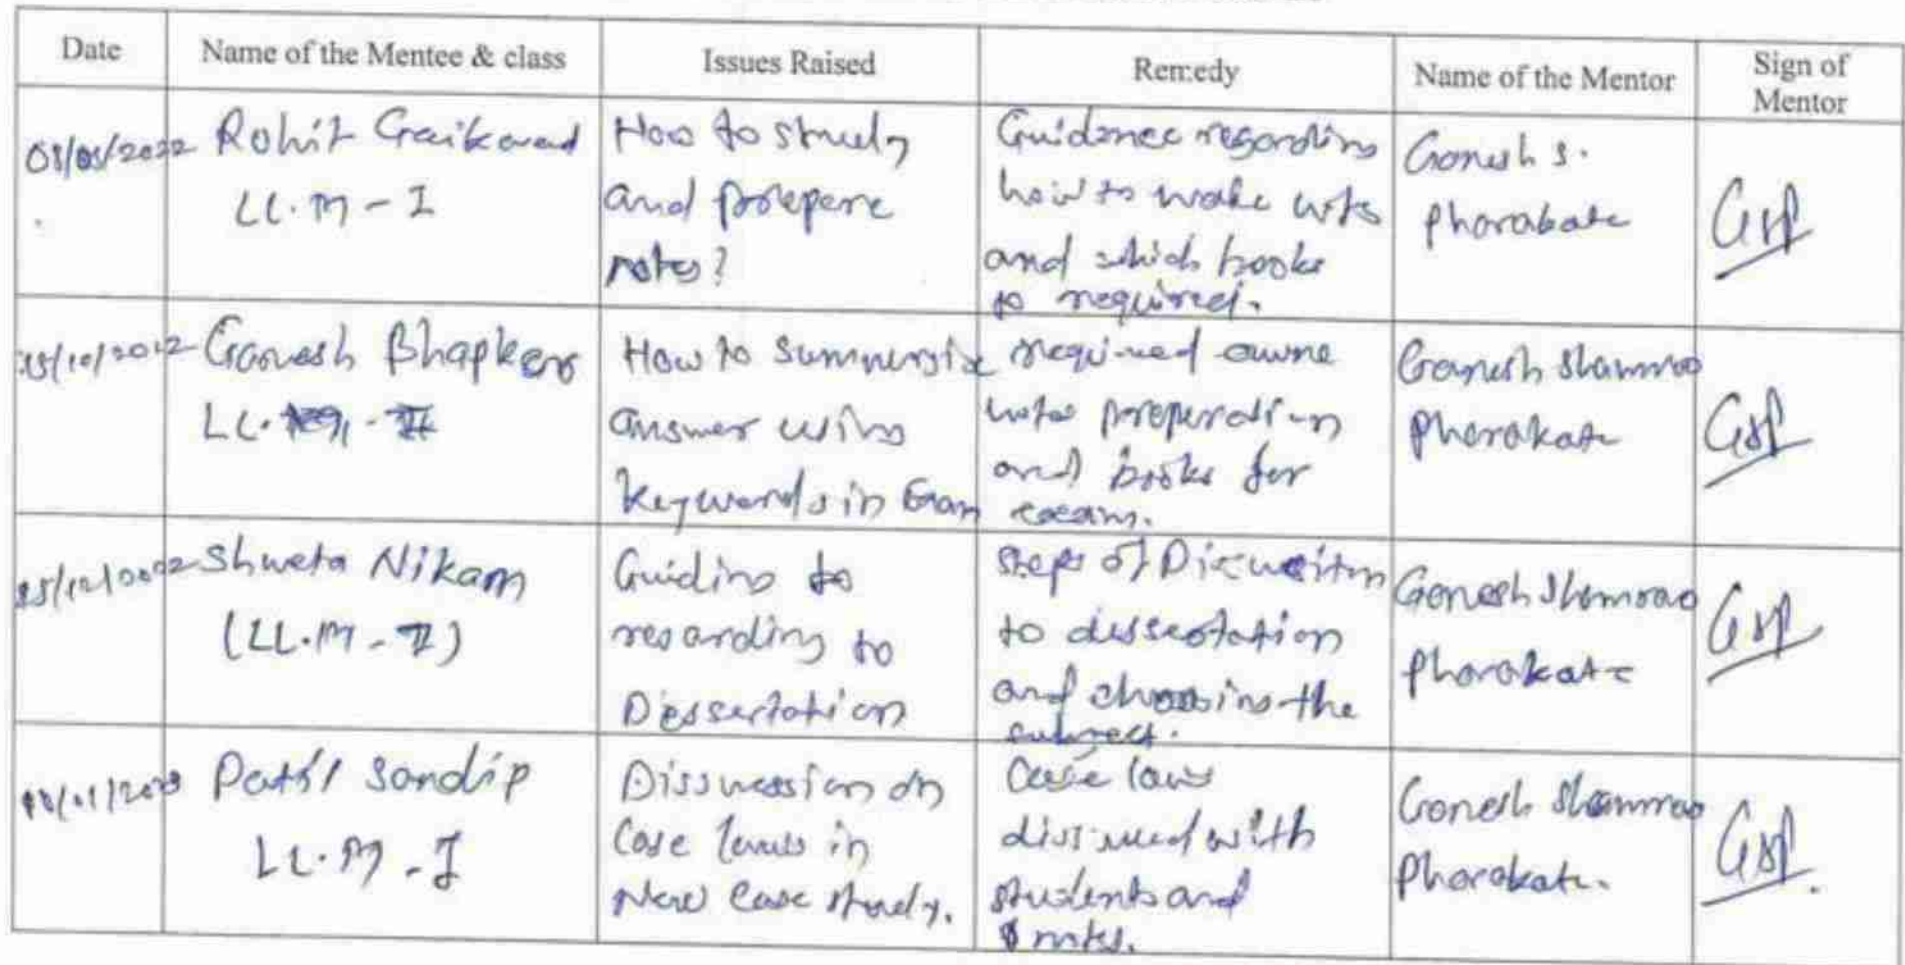 Date
Name of the Mentee & class
Issues Raised
Remedy
Name of the Mentor
Sign of
Mentor
Rohit Gaikavad
LL.M - I
How to study
and prepare
notes?
Guidance regarding
how to make nots
and which books
to required.
Ganesh S.
Pharakate
GSP
Ganesh Bhapker
LL.
How to Summersize
answer using
keywords in Exam
required owne
notes preperation
and books for
exam.
Ganesh Shamrao
Pharakate
GSP
Shweta Nikam
(LL.M - I)
Guiding to
regarding to
Dessertation
Steps of
to dissertation
and choosing the
subject.
Ganesh Shamrao
Pharakate
GSP
Patil Sandip
LL.M - I
Dissuession on
Case laws in
New Case study.
Case laws
with
students and
notes.
Ganesh Shamrao
Pharakate.
GSP.